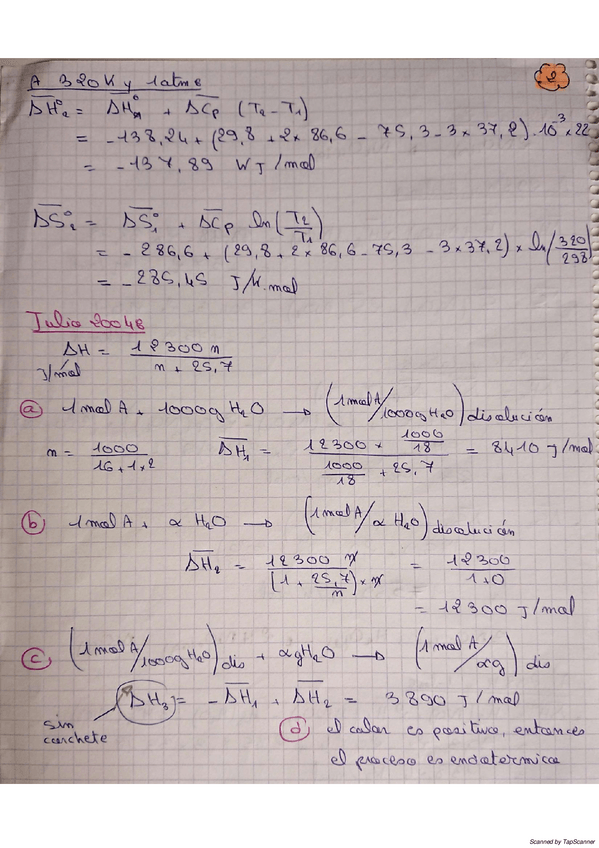 2
A 320K y 1atm e
ΔH°₂ = ΔH°₁ + ΔCp (T₂ - T₁)
= -138,24 + (29,8 + 2 x 86,6 - 75,3 - 3 x 37,2) . 10⁻³ x 22
= -137,89 KJ/mol
ΔS°₂ = ΔS°₁ + ΔCp ln(T₂/T₁)
= -286,6 + (29,8 + 2 x 86,6 - 75,3 - 3 x 37,2) x ln(320/298)
= -285,45 J/K.mol
Julio 2004 B
ΔH = 12300 n / n + 25,7
J/mol
a) 1 mol A + 1000g H₂O → (1 mol A / 1000g H₂O) disolución
n = 1000 / 16 + 1 x 2 ΔH₁ = 12300 x 1000/18 / 1000/18 + 25,7 = 8410 J/mol
b) 1 mol A + ∝ H₂O → (1 mol A / ∝ H₂O) disolución
ΔH₂ = 12300 n / (1 + 25,7/n) x n = 12300 / 1+0
= 12300 J/mol
c) (1 mol A / 1000g H₂O) dis + ∝g H₂O → (1 mol A / ∝g) dis
ΔH₃ = -ΔH₁ + ΔH₂ = 3890 J/mol
sin
corchete
d) el calor es positivo, entonces
el proceso es endotermico
Scanned by TapScanner